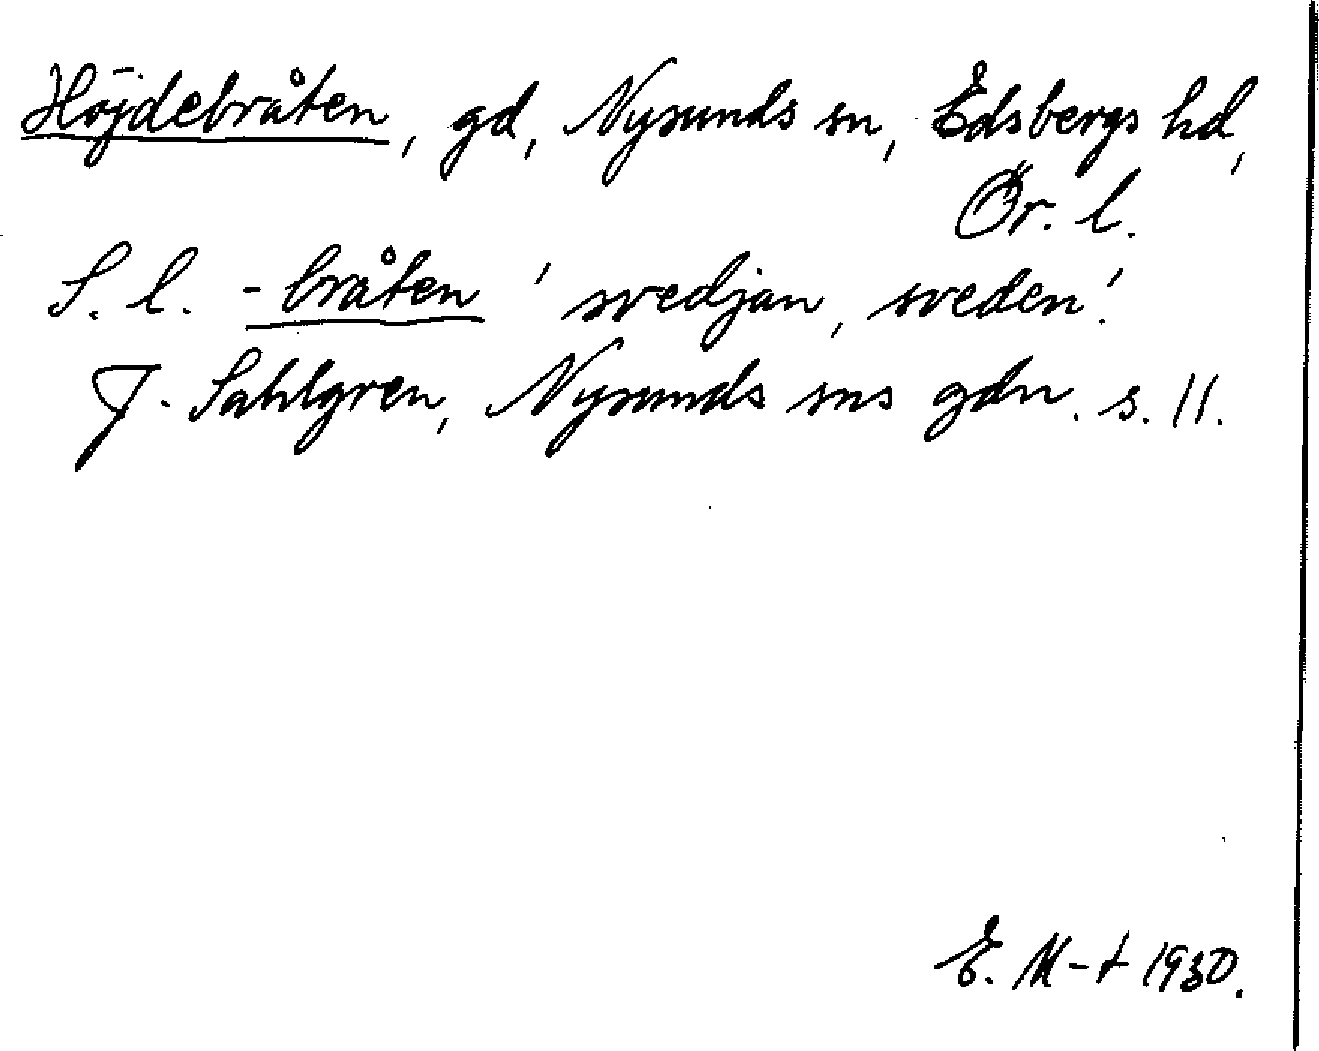 Höjdebråten, gd, Nysunds sn, Edsbergs hd,
Ör. l.
S. l. -bråten 'svedjan, sveden'.
J. Sahlgren, Nysunds sns gdn. s. 11.
E. M-t 1930.